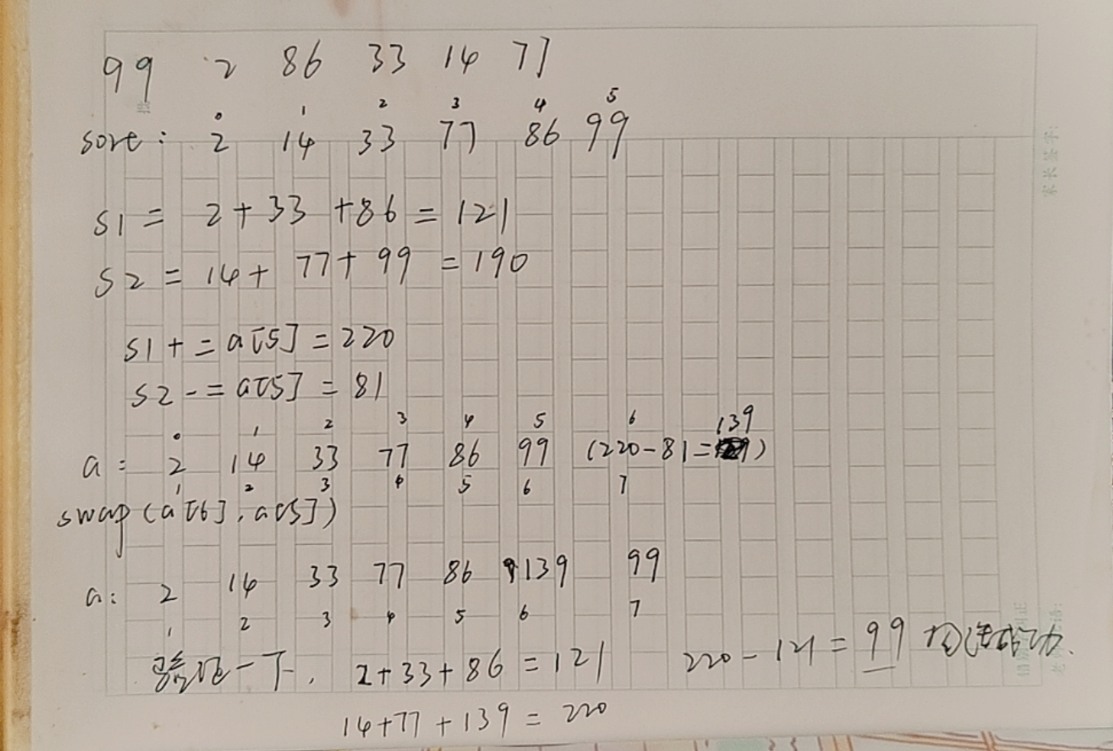 99 2 86 33 14 77
0 1 2 3 4 5
sort: 2 14 33 77 86 99
S1 = 2+33+86=121
S2 = 14+77+99=190
S1+=a[5]=220
S2-=a[5]=81
0 1 2 3 4 5 6 139
a: 2 14 33 77 86 99 (220-81=)
1 2 3 4 5 6 7
swap(a[6],a[5])
a: 2 14 33 77 86 139 99
1 2 3 4 5 6 7
验证一下, 2+33+86=121 220-121=99 构造成功.
14+77+139=220